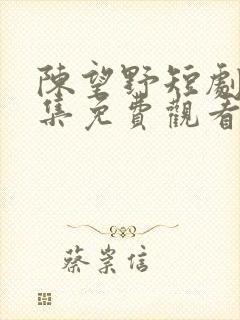 陳望野短劇
集免費觀看
蔡崇信